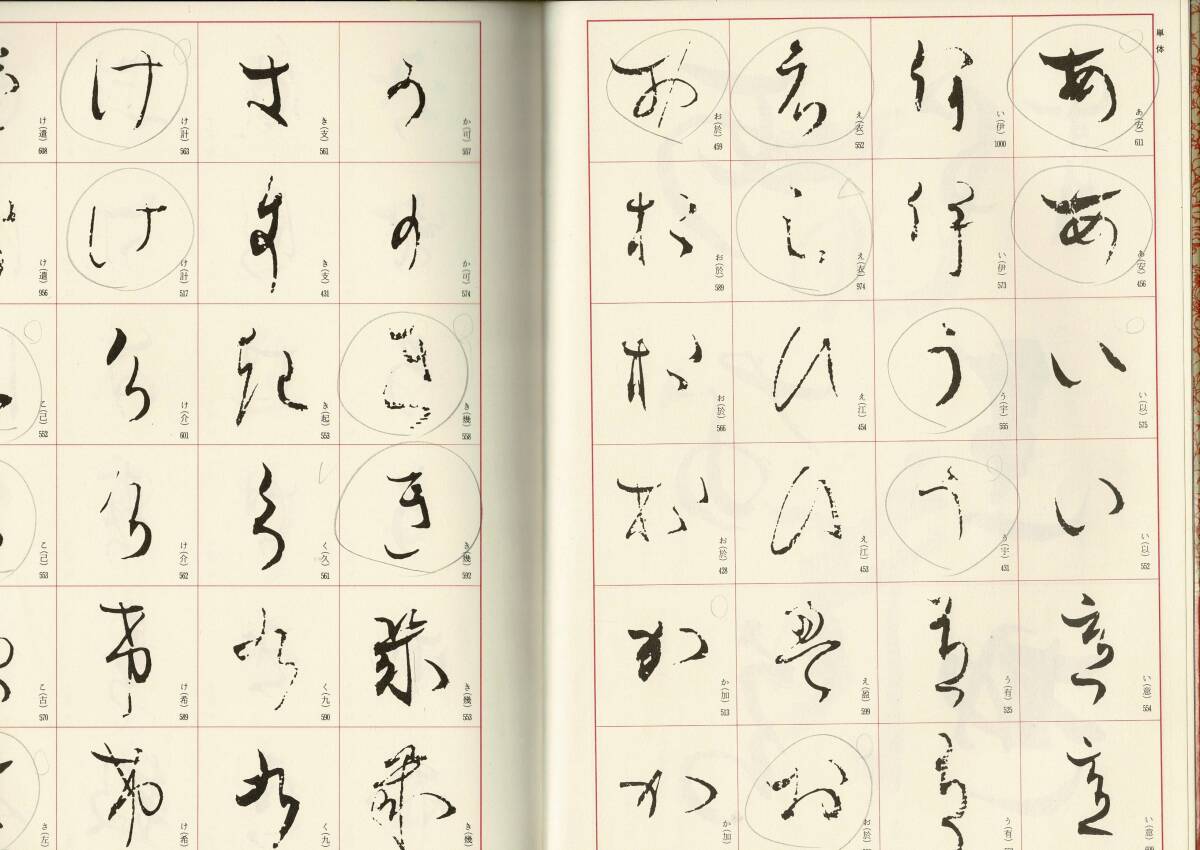 単体
あ(安) 611
あ(安) 456
い(以) 575
い(以) 552
い(意) 554
い(意)
い(伊) 1000
い(伊) 573
う(宇) 555
う(宇) 431
う(有) 525
う(有)
え(衣) 552
え(衣) 974
え(江) 454
え(江) 453
え(盈) 599
お(於)
お(於) 459
お(於) 589
お(於) 566
お(於) 428
か(加) 513
か(加)
か(可) 557
か(可) 574
き(幾) 558
き(幾) 592
き(幾) 553
き(幾)
き(支) 561
き(支) 431
き(起) 553
く(久) 561
く(九) 590
く(九)
け(計) 563
け(計) 517
け(介) 601
け(介) 562
け(希) 589
け(希)
け(遣) 608
け(遣) 956
こ(己) 552
こ(己) 553
こ(古) 570
さ(左)